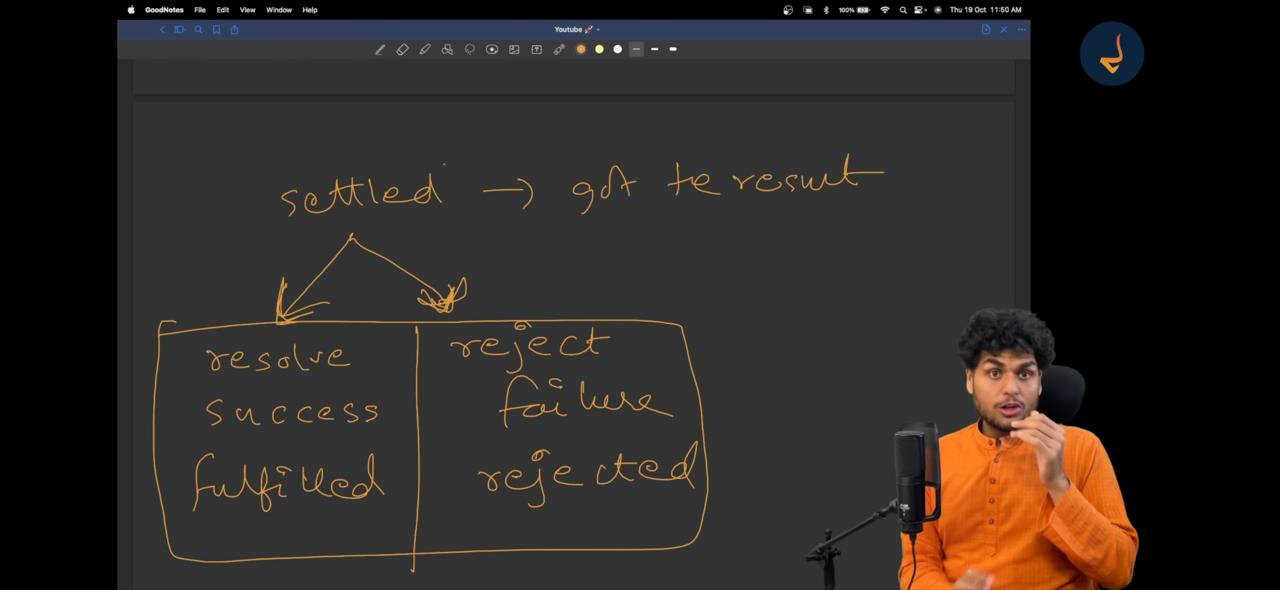 GoodNotes File Edit View Window Help 100% Thu 19 Oct 11:50 AM
Youtube 🚀
settled → got te result
resolve reject
success failure
fulfilled rejected